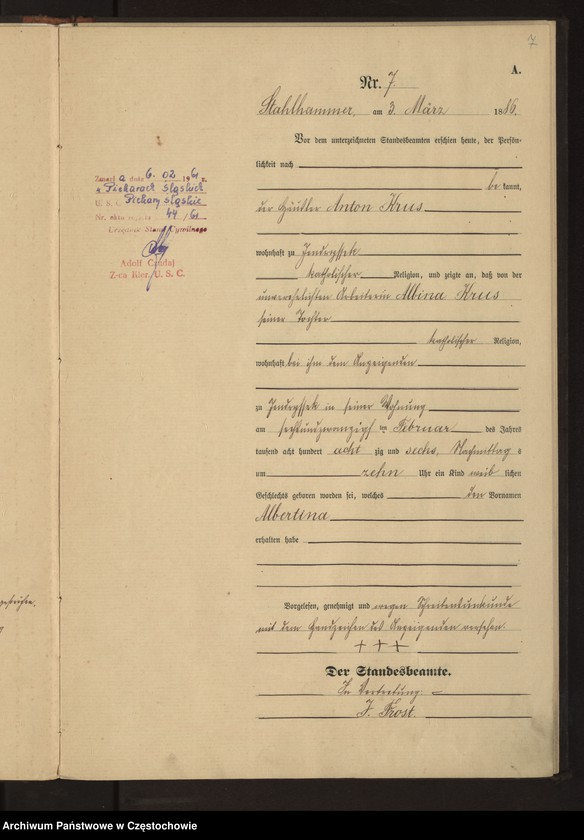 7
A.
Nr. 7.
Stahlhammer, am 3. März 1886.
Vor dem unterzeichneten Standesbeamten erschien heute, der Persön-
lichkeit nach
be kannt,
der Häusler Anton Krus
wohnhaft zu Jendryssek
katholischer Religion, und zeigte an, daß von der
unverehelichten Arbeiterin Albina Krus
seiner Tochter
katholischer Religion,
wohnhaft bei ihm dem Anzeigenden
zu Jendryssek in seiner Wohnung
am sechsundzwanzigsten Februar des Jahres
tausend acht hundert acht zig und sechs, Nachmittag s
um zehn Uhr ein Kind weib lichen
Geschlechts geboren worden sei, welches den Vornamen
Albertina
erhalten habe
Vorgelesen, genehmigt und wegen Schreibensunkunde
mit dem Handzeichen des Anzeigenden versehen.
+++
Der Standesbeamte.
In Vertretung
J. Frost.
Zmarł a dnia 6. 02 1961 r.
w Piekarach Śląskich
U. S. C. Piekary Śląskie
Nr. aktu 44/61
Urzędnik Stanu Cywilnego
Adolf
Z-ca Kier. U. S. C.
Archiwum Państwowe w Częstochowie